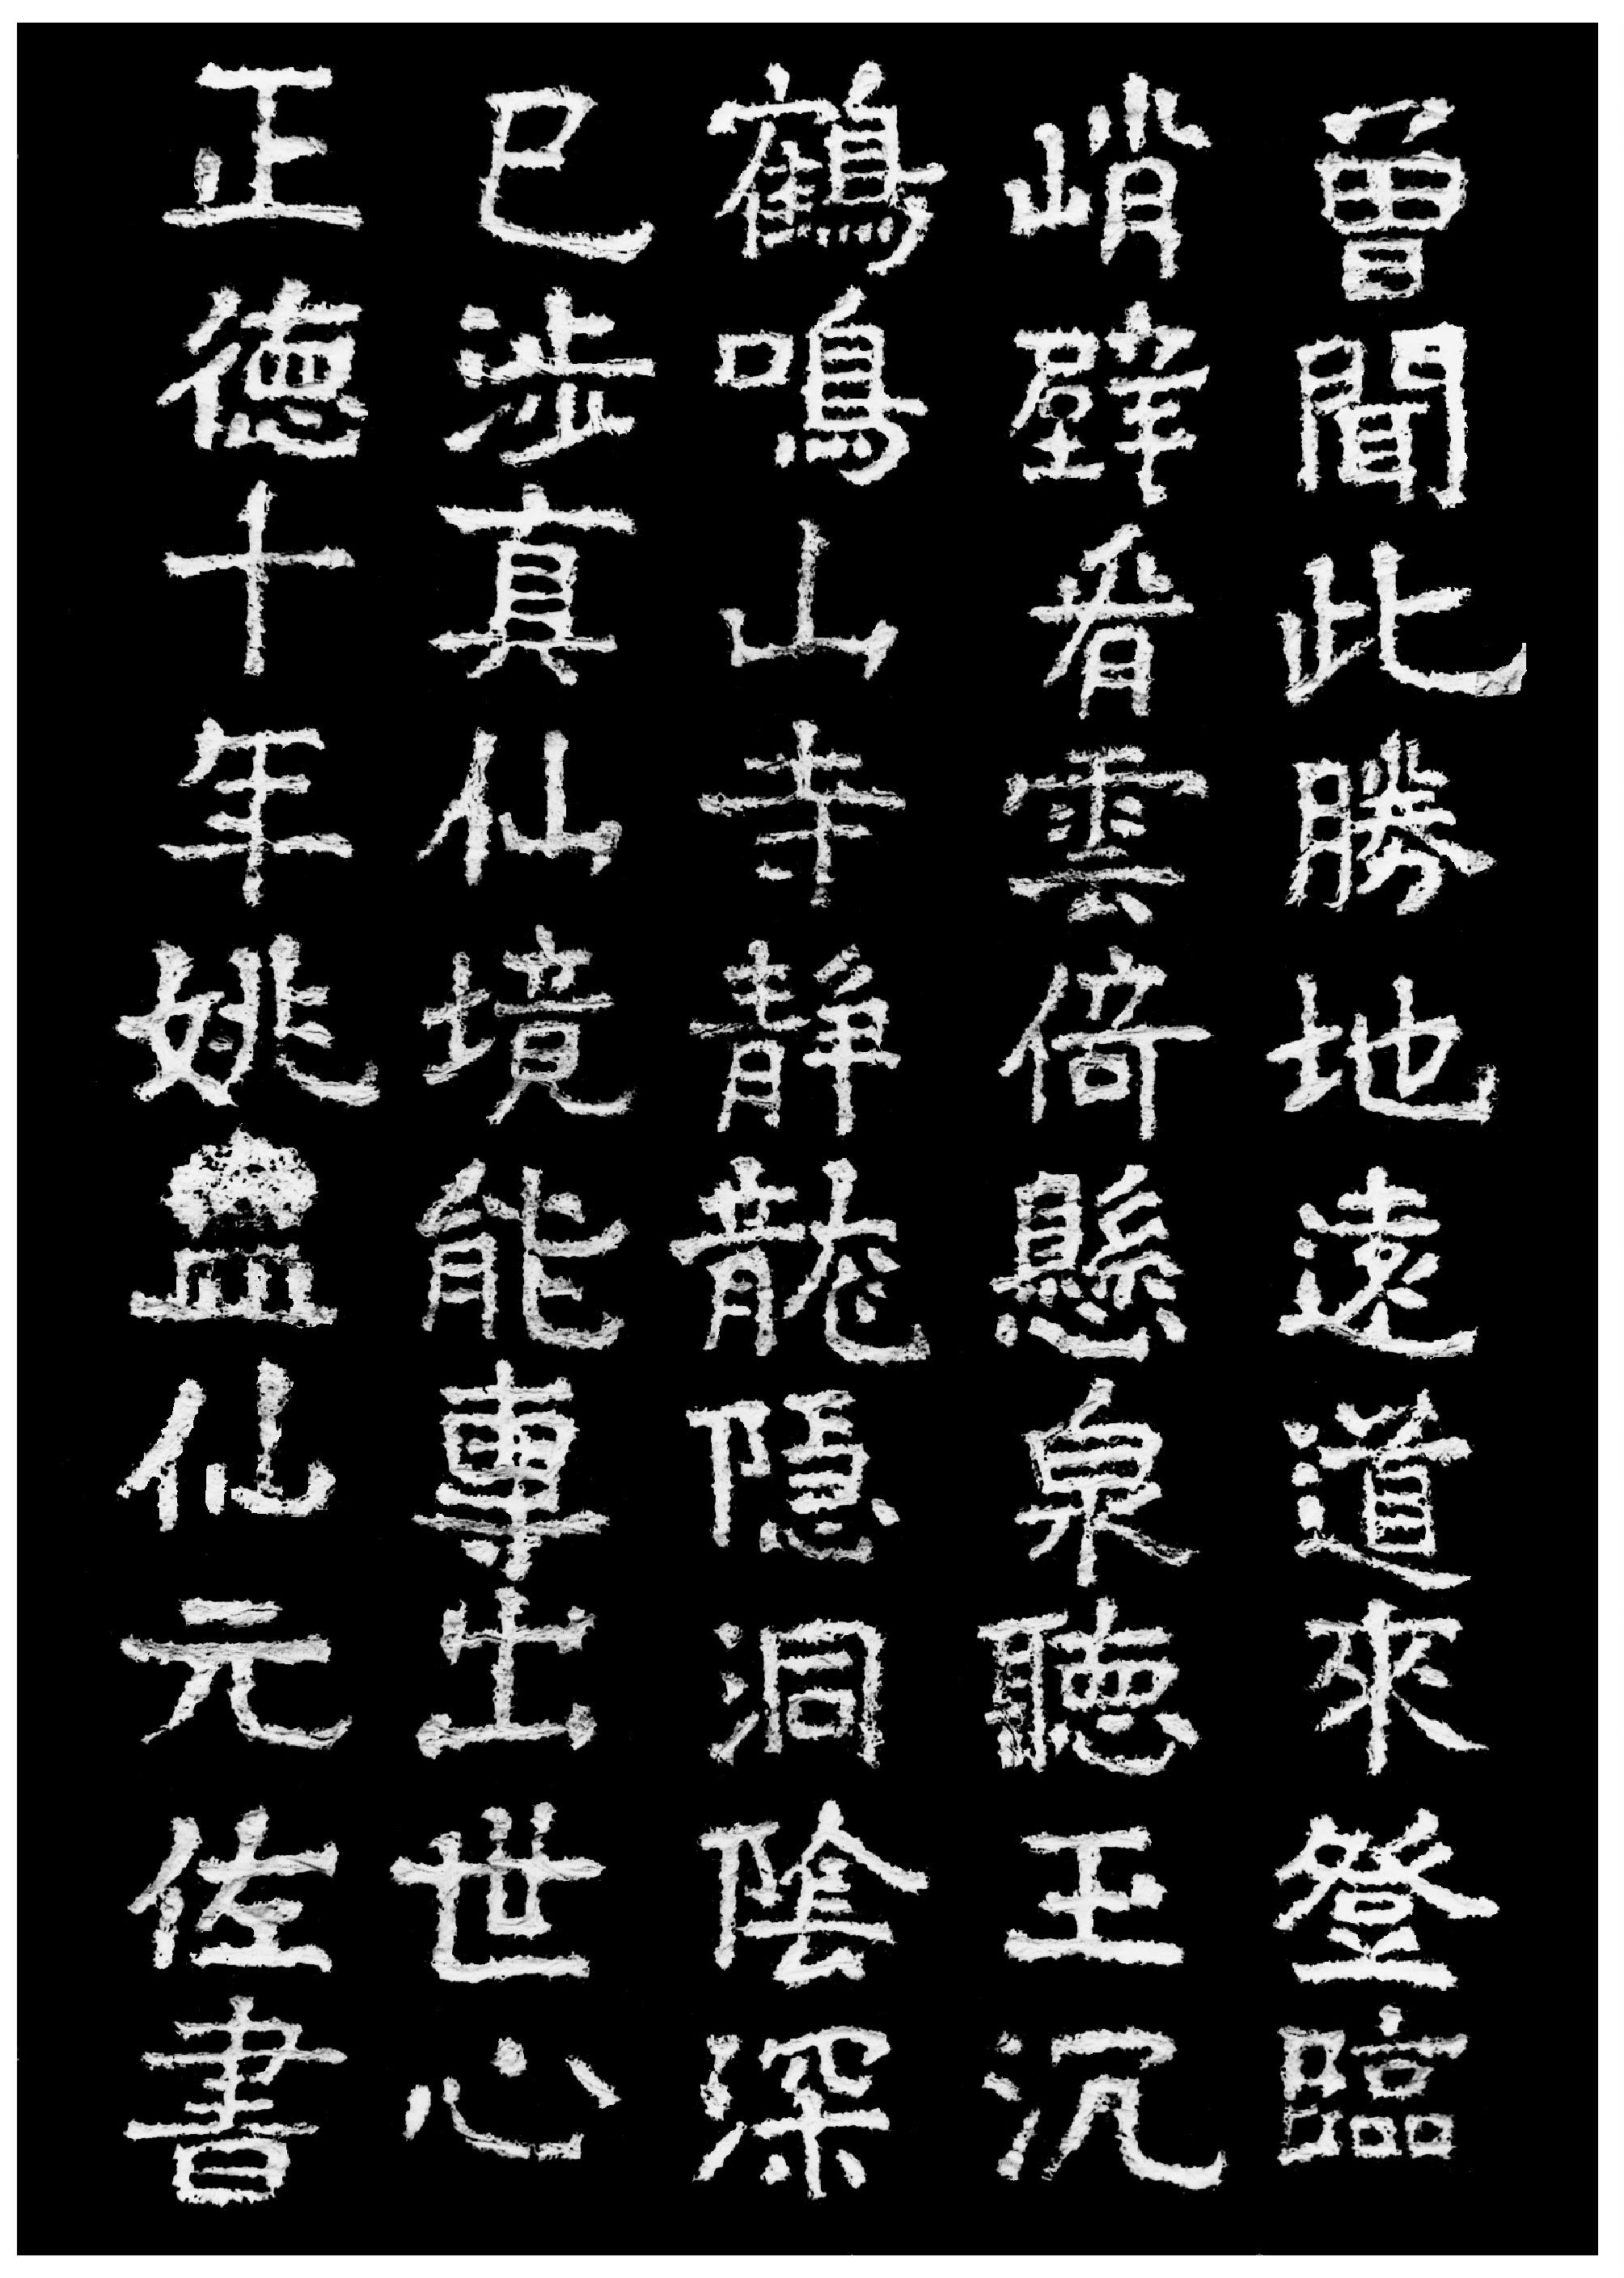 曾聞此勝地遠道來登臨
峭壁看雲倚懸泉聽玉沉
鶴鳴山寺静龍隱洞陰深
已涉真仙境能專出世心
正德十年姚仙元佐書